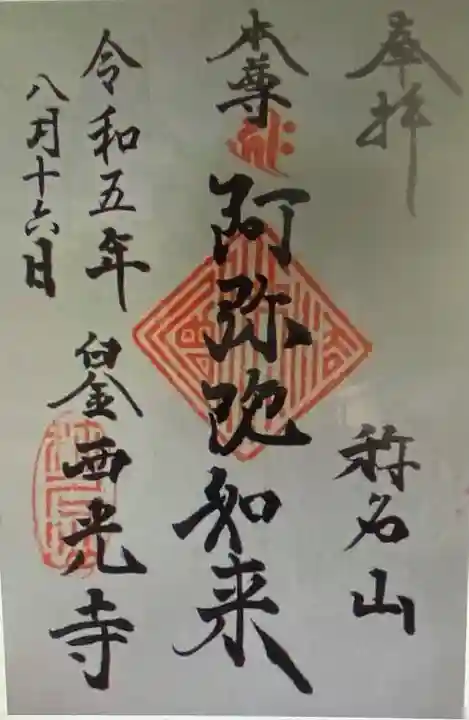 奉拝
称名山
本尊
阿弥陀如来
令和五年
八月十六日
西光寺